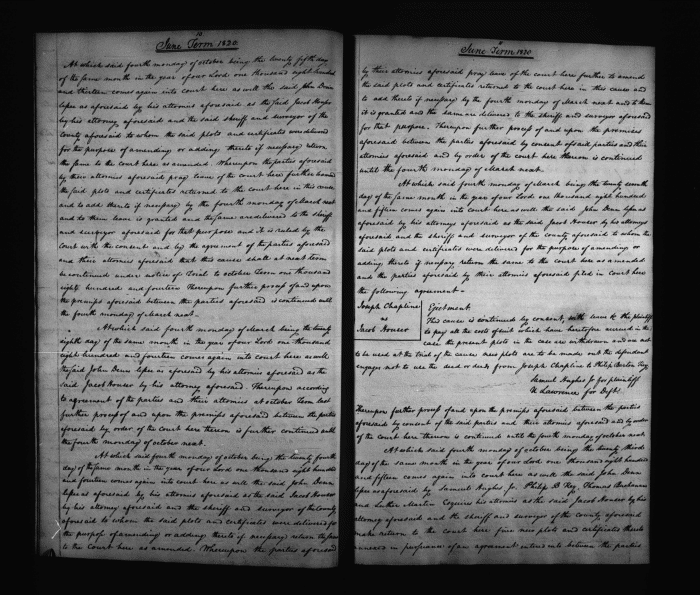 10
June Term 1820
At which said fourth monday of october being the twenty fifth day
of the same month in the year of our Lord one thousand eight hundred
and thirteen comes again into court here as well the said John Denn
lessee as aforesaid by his attornies aforesaid as the said Jacob Houser
by his attorney aforesaid and the said sheriff and surveyor of the
county aforesaid to whom the said plots and certificates were delivered
for the purpose of amending or adding thereto if necessary return
the same to the court here as amended. Whereupon the parties aforesaid
by their attornies aforesaid pray leave of the court here further to amend
the said plots and certificates returned to the court here in this cause
and to add thereto if necessary by the fourth monday of March next
and to them leave is granted and the same are delivered to the sheriff
and surveyor aforesaid for that purpose and it is ruled by the
court with the consent and by the agreement of the parties aforesaid
and their attornies aforesaid that this cause shall at next term
be continued under notice of trial to october Term one thousand
eight hundred and fourteen Thereupon further process of and upon
the premises aforesaid between the parties aforesaid is continued until
the fourth monday of March next.
At which said fourth monday of March being the twenty
eighth day of the same month in the year of our Lord one thousand
eight hundred and fourteen comes again into court here as well
the said John Denn lessee as aforesaid by his attornies aforesaid as the
said Jacob Houser by his attorney aforesaid. Thereupon according
to agreement of the parties and their attornies at october Term last
further process of and upon the premises aforesaid between the parties
aforesaid by order of the court here thereon is further continued until
the fourth monday of october next.
At which said fourth monday of october being the twenty fourth
day of the same month in the year of our Lord one thousand eight hundred
and fourteen comes again into court here as well the said John Denn
lessee as aforesaid by his attornies aforesaid as the said Jacob Houser
by his attorney aforesaid and the sheriff and surveyor of the county
aforesaid to whom the said plots and certificates were delivered for
the purpose of amending or adding thereto if necessary return the same
to the Court here as amended. Whereupon the parties aforesaid
11
June Term 1820
by their attornies aforesaid pray leave of the court here further to amend
the said plots and certificates returned to the court here in this cause and
to add thereto if necessary by the fourth monday of March next and to them
it is granted and the same are delivered to the sheriff and surveyor aforesaid
for that purpose. Thereupon further process of and upon the premises
aforesaid between the parties aforesaid by consent of said parties and their
attornies aforesaid and by order of the court here thereon is continued
until the fourth monday of March next.
At which said fourth monday of March being the twenty seventh
day of the same month in the year of our Lord one thousand eight hundred
and fifteen comes again into court here as well the said John Denn lessee as
aforesaid by his attornies aforesaid as the said Jacob Houser by his attorney
aforesaid and the sheriff and surveyor of the county aforesaid to whom the
said plots and certificates were delivered for the purpose of amending or
adding thereto if necessary return the same to the court here as amended
and the parties aforesaid by their attornies aforesaid filed in court here
the following agreement.
Joseph Chapline
vs
Jacob Houser
Ejectment.
This cause is continued by consent, with leave to the plaintiff
to pay all the costs of suit which have heretofore accrued in the
case the present plots in the case are withdrawn and are not
to be used at the trial of the cause new plots are to be made out the defendant
engages not to use the deed or deeds from Joseph Chapline to Philip Barton Key
Samuel Hughes Jr for plaintiff
U Lawrence for Deft.
Thereupon further process of and upon the premises aforesaid between the parties
aforesaid by consent of the said parties and their attornies aforesaid and by order
of the court here thereon is continued until the fourth monday of october next
At which said fourth monday of october being the twenty third
day of the same month in the year of our Lord one thousand eight hundred
and fifteen comes again into court here as well the said John Denn
lessee as aforesaid by Samuel Hughes Jr. Philip B Key, Thomas Buchanan
and Luther Martin Esquires his attornies as the said Jacob Houser by his
attorney aforesaid and the sheriff and surveyor of the county aforesaid
make return to the court here five new plots and certificates thereto
annexed in pursuance of an agreement entered into between the parties